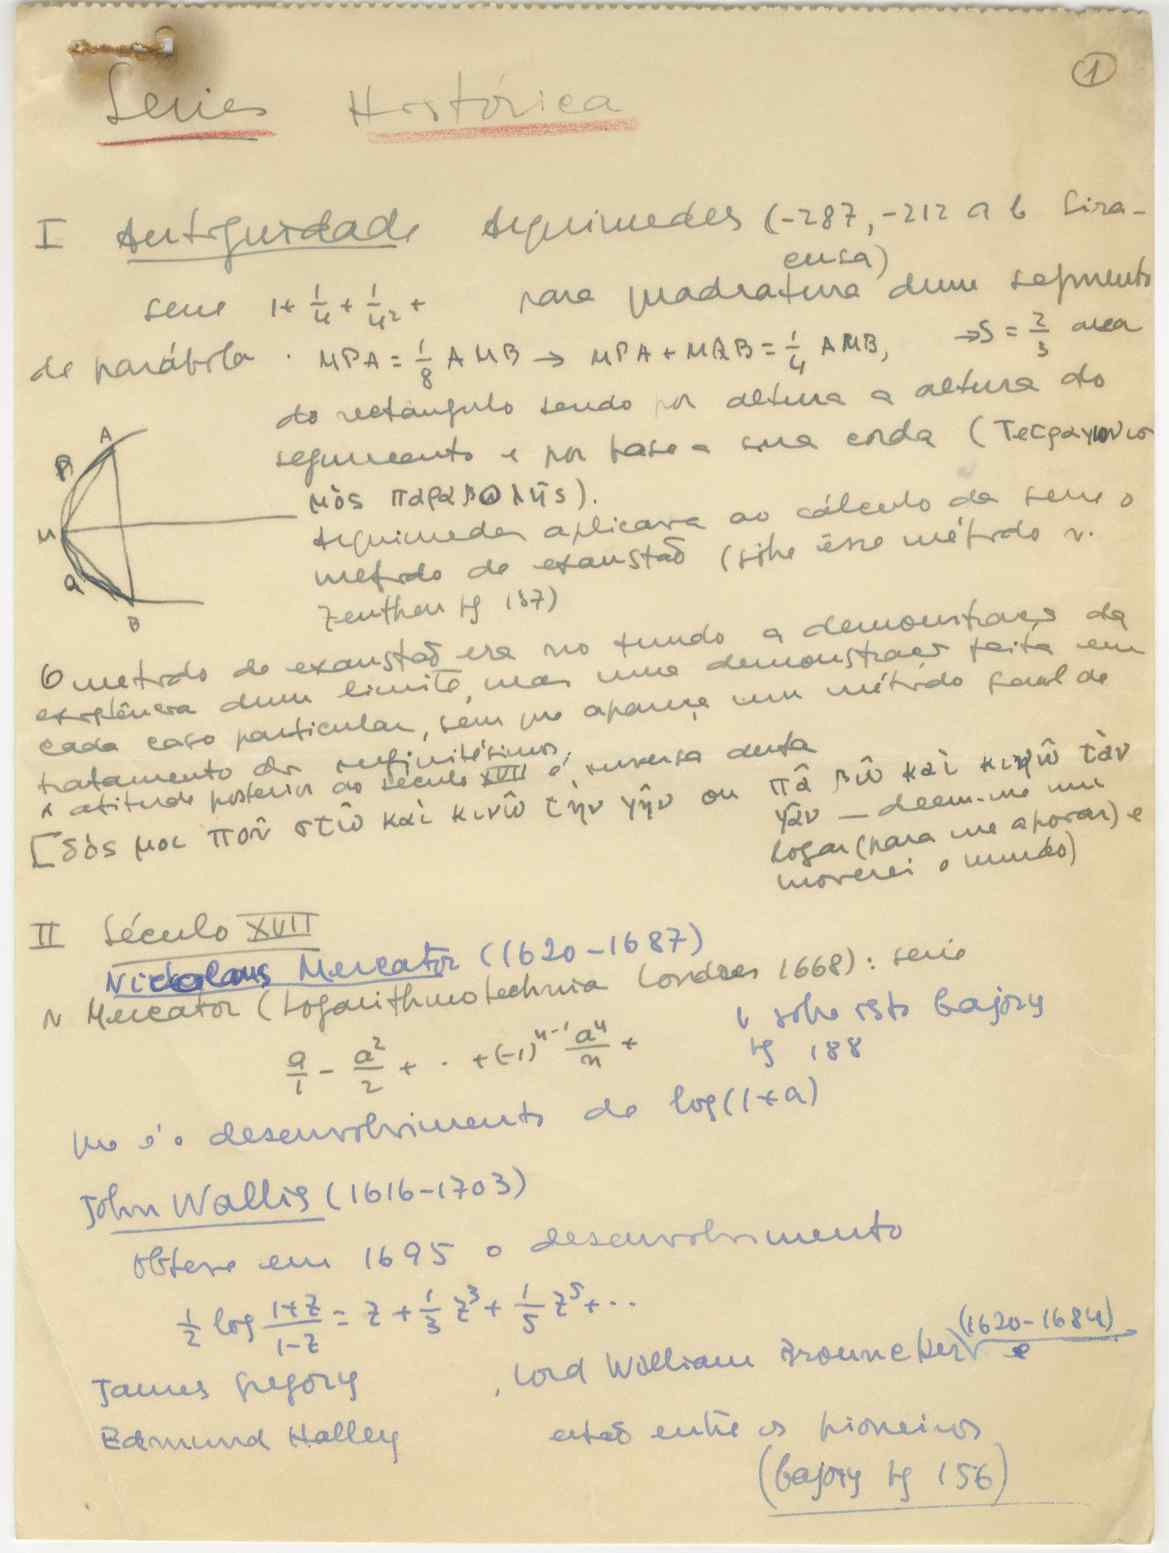 ①
Series Histórica
I Antiguidade Arquimedes (-287, -212 a b Sira-
cusa)
serie 1+ 1/4 + 1/4² + para quadratura dum segmento
de parábola . MPA = 1/8 AMB → MPA + MQB = 1/4 AMB, → S = 2/3 area
do rectangulo sendo por altura a altura do
segmento e por base a sua corda (Τετραγωνισ
μὸς παραβολῆς).
Arquimedes aplicava ao cálculo da serie o
metodo de exaustão (sobre êsse método v.
Zeuthen pg 137)
A
P
M
Q
B
O metodo de exaustão era no fundo a demonstração da
existência dum limite, mas uma demonstração feita em
cada caso particular, sem que apareça um método geral de
tratamento dos infinitésimos.
A atitude posterior ao século XVII é inversa desta
[δός μοι ποῦ στῶ καὶ κινῶ τὴν γῆν ou πᾶ βῶ καὶ κινῶ τὰν
γᾶν — deem-me um
logar (para me apoiar) e
moverei o mundo)
II Século XVII
Nicolaus Mercator (1620-1687)
N Mercator (Logarithmotechnia Londres 1668): serie
a/1 - a²/2 + . + (-1)ⁿ⁻¹ aⁿ/n +
v sobre isto Cajory
pg 188
que é o desenvolvimento de log(1+a)
John Wallis (1616-1703)
Obteve em 1695 o desenvolvimento
1/2 log 1+z/1-z = z + 1/3 z³ + 1/5 z⁵ + ..
(1620-1684)
James Gregory , Lord William Brouncker e
Edmund Halley estão entre os pioneiros
(Cajory pg 156)